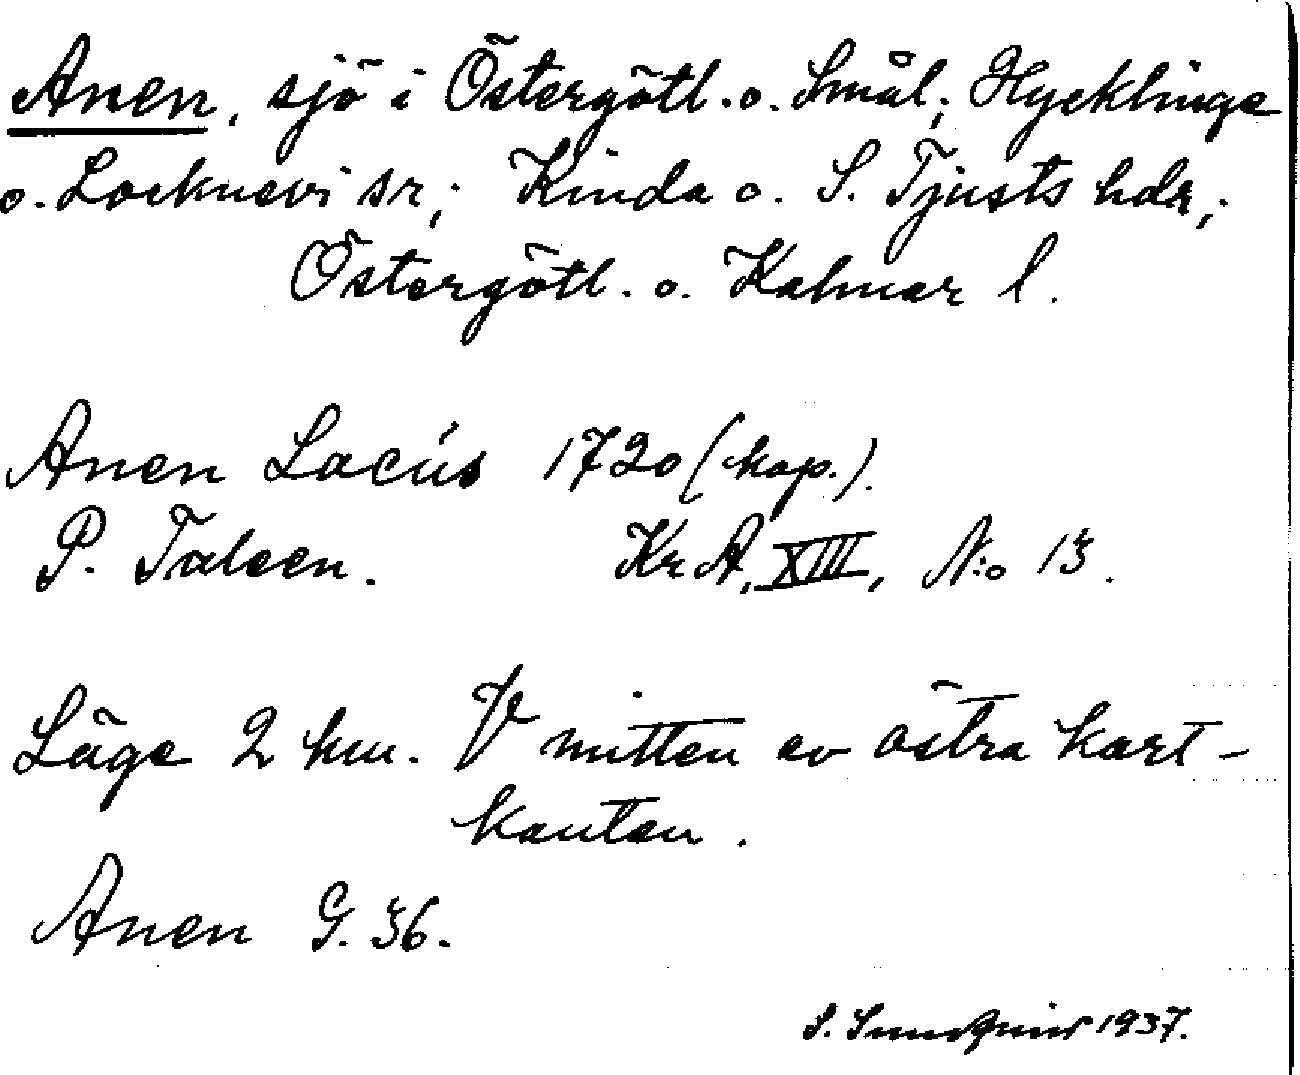 Anen, sjö i Östergötl. o. Smål; Hycklinge
o. Locknevi sr; Kinda o. S. Tjusts hdr;
Östergötl. o. Kalmar l.
Anen Lacus 1720 (kop.).
P. Taleen. KrA, XIII, N:o 13.
Läge 2 km. V mitten av östra kart-
kanten.
Anen G. 36.
S. 1937.